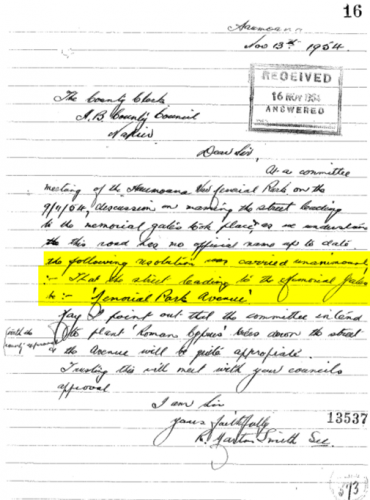 16
Haumoana
Nov 13th 1954.
RECEIVED
16 NOV 1954
ANSWERED
The County Clerk
H.B. County Council
Napier
Dear Sir,
At a committee
meeting of the Haumoana Memorial Park on the
9/11/54, discussion on naming the street leading
to the memorial gates took place, as we understand
this road has no official name up to date.
the following resolution was carried unanimously
:- That the street leading to the Memorial Gates
be :- 'Memorial Park Avenue'
May I point out that the committee intend
to plant 'Roman Cyprus' trees down the street
(with the
so the Avenue will be quite appropriate.
Trusting this will meet with your councils
approval
I am Sir
yours faithfully
Smith Sec.
13537